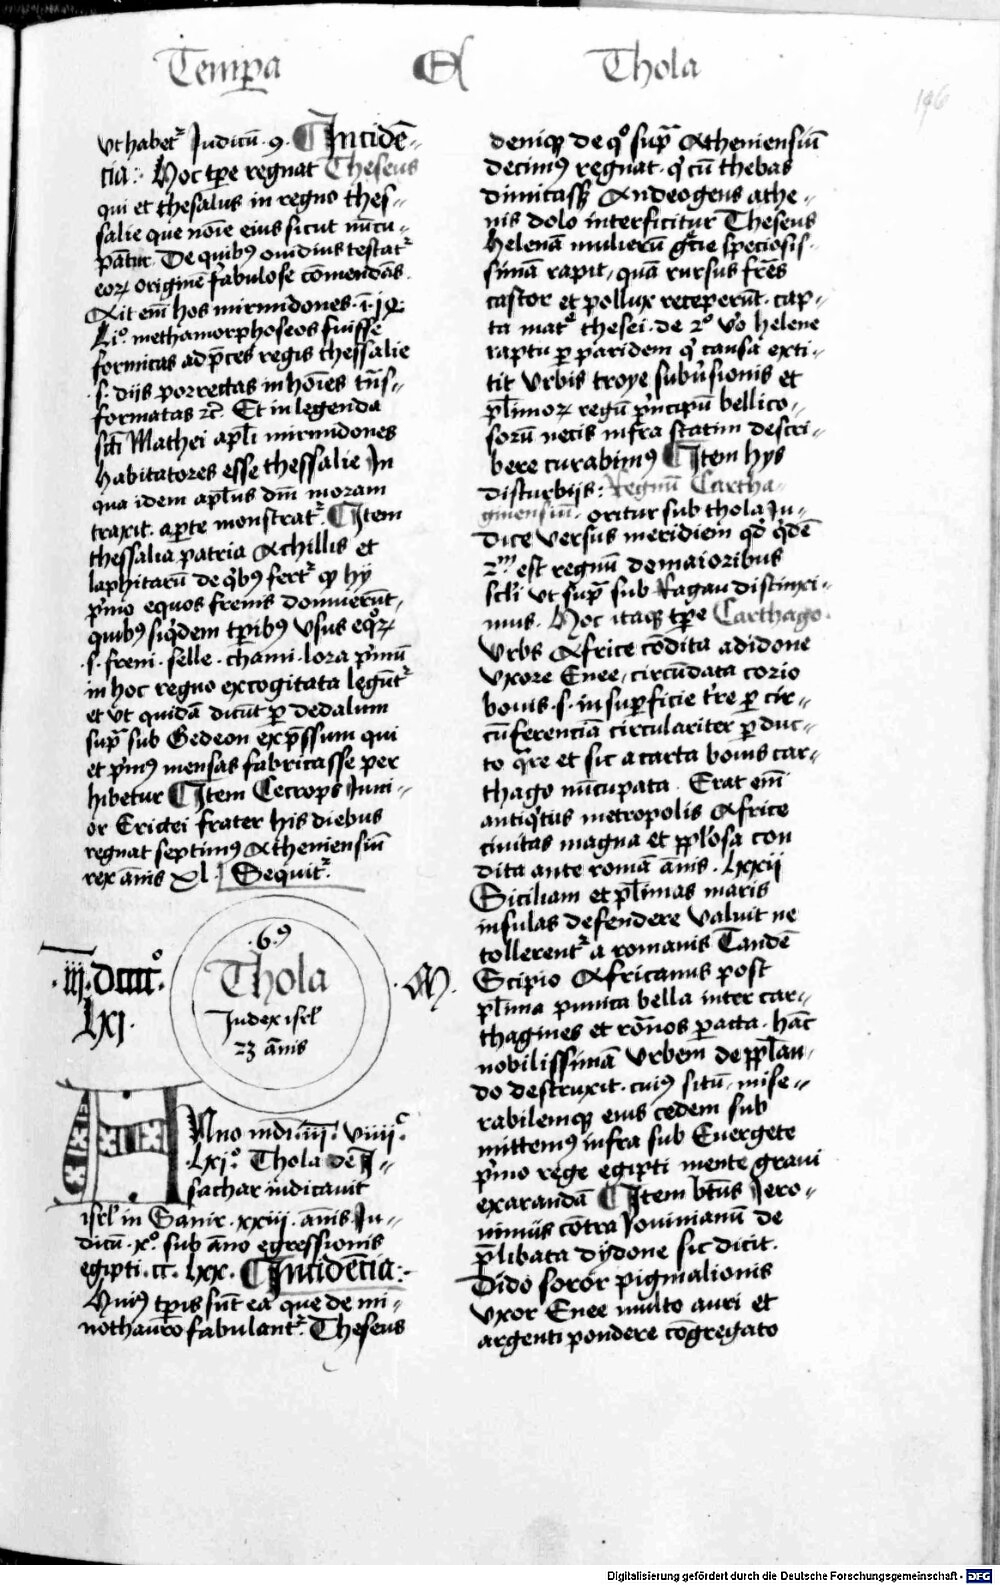 Temp̄a Et Thola
196
vt habetᷣ Judicū .9. Incidē-
cia: Hoc tp̄e regnat Theseus
qui et thesalus in regno thes-
salie que noīe eius sicut nūcu-
pātur. De quibꝰ ouidius testatᷣ
eoꝝ originē fabulose cōmendās.
Ait em̄ hos mirmidones .i. in
Li° methamorphoseos fuisse
formicas ad p̄ces regis thessalie
.s. dijs porrectas in hoīes trās-
formatas ⁊c̄. Et in legenda
scī Mathei apl̄i mirmidones
habitatores esse thessalie In
qua idem apl̄us diu moram
traxit. aperte monstratᷣ. Item
thessalia patria Achillis et
laphitarū de qͥbꝰ fertᷣ qꝫ hÿ
pͥmo equos frenis domuerūt,
quibꝰ siqͥdem tp̄ribꝰ vsus eqͦꝝ
.s. freni. selle. chami. lora pͥmū
in hoc regno excogitata legūtᷣ
et vt quidā dicūt ꝑ dedalum
supᷓ sub Gedeon exp̄ssum qui
et pͥmꝰ mensas fabricasse per
hibetur Item Cecrops Juni-
or Erictei frater his diebus
regnat septimꝰ Atheniensiū
rex ānis xl. Sequitᷣ.
.69
.iij. Dcccc°.
lxj.
Thola
Judex isrl̄
23 ānis
M.
Anno mūdi .iij. viiijᶜ.
.lxj°. Thola de J-
sachar iudicauit
isrl̄ in Sanir .xxiij. anis Ju-
dicū .x°. sub āno egressionis
egipti .cc. lxx. Incidēcia:
Huiꝰ tp̄ris sūt ea que de mi-
nothauro fabulantᷣ. Theseus
deniqꝫ de qͦ supᷓ Atheniensiū
decimꝰ regnat. qͥ cū thebas
dimicasset Andeogens athe-
nis dolo interficitur Theseus
Helenā mulierū grecie speciosis-
simā rapit, quā rursus fr̄es
castor et pollux receperūt. cap-
ta matͤ thesei. de 2° v̊o helene
raptu ꝑ paridem qͥ causa exti-
tit vrbis troye subūsionis et
pl̄imoꝝ regū pͥncipū bellico-
sorū necis infra statim descri-
bere curabimꝰ Item hys
disturbijs: Regnū Cartha-
ginensiū. oritur sub thola Ju-
dice versus meridiem qd̄ qͥdē
2ᵐ est regnū de maioribus
scl̄i vt supᷓ sub Ragau distinxi-
mus. Hoc itaqꝫ tp̄e Carthago.
vrbs Africe cōdita a didone
vxore Enee, circūdata corio
bouis .s. in suꝑficie tr̄e ꝑ cir-
cūferenciā circulariter ꝑ duc-
to qᷓre et sic a carta bouis car-
thago nūcupata. Erat em̄
antiqͥtus metropolis Africe
ciuitas magna et ppl̄osa con
dita ante romā ānis. lxxij
Siciliam et pl̄imas maris
insulas defendere valuit ne
tollerentᷣ a romanis Tandē
Scipio Africanus post
pl̄ima punica bella inter car-
thagines et rōnos ꝑacta. hāc
nobilissimā vrbem de ppl̄an-
do destruxit. cuiꝰ situ, mise-
rabilemqꝫ eius cedem sub
mittemꝰ infra sub Euergete
pͥmo rege egipti mente graui
exarandā Item btūs Jero-
nimus cōtra Jouinianū de
p̄libata dydone sic dicit.
Dido soror pigmalionis
vxor Enee multo auri et
argenti pondere cōgregato
Digitalisierung gefördert durch die Deutsche Forschungsgemeinschaft - DFG